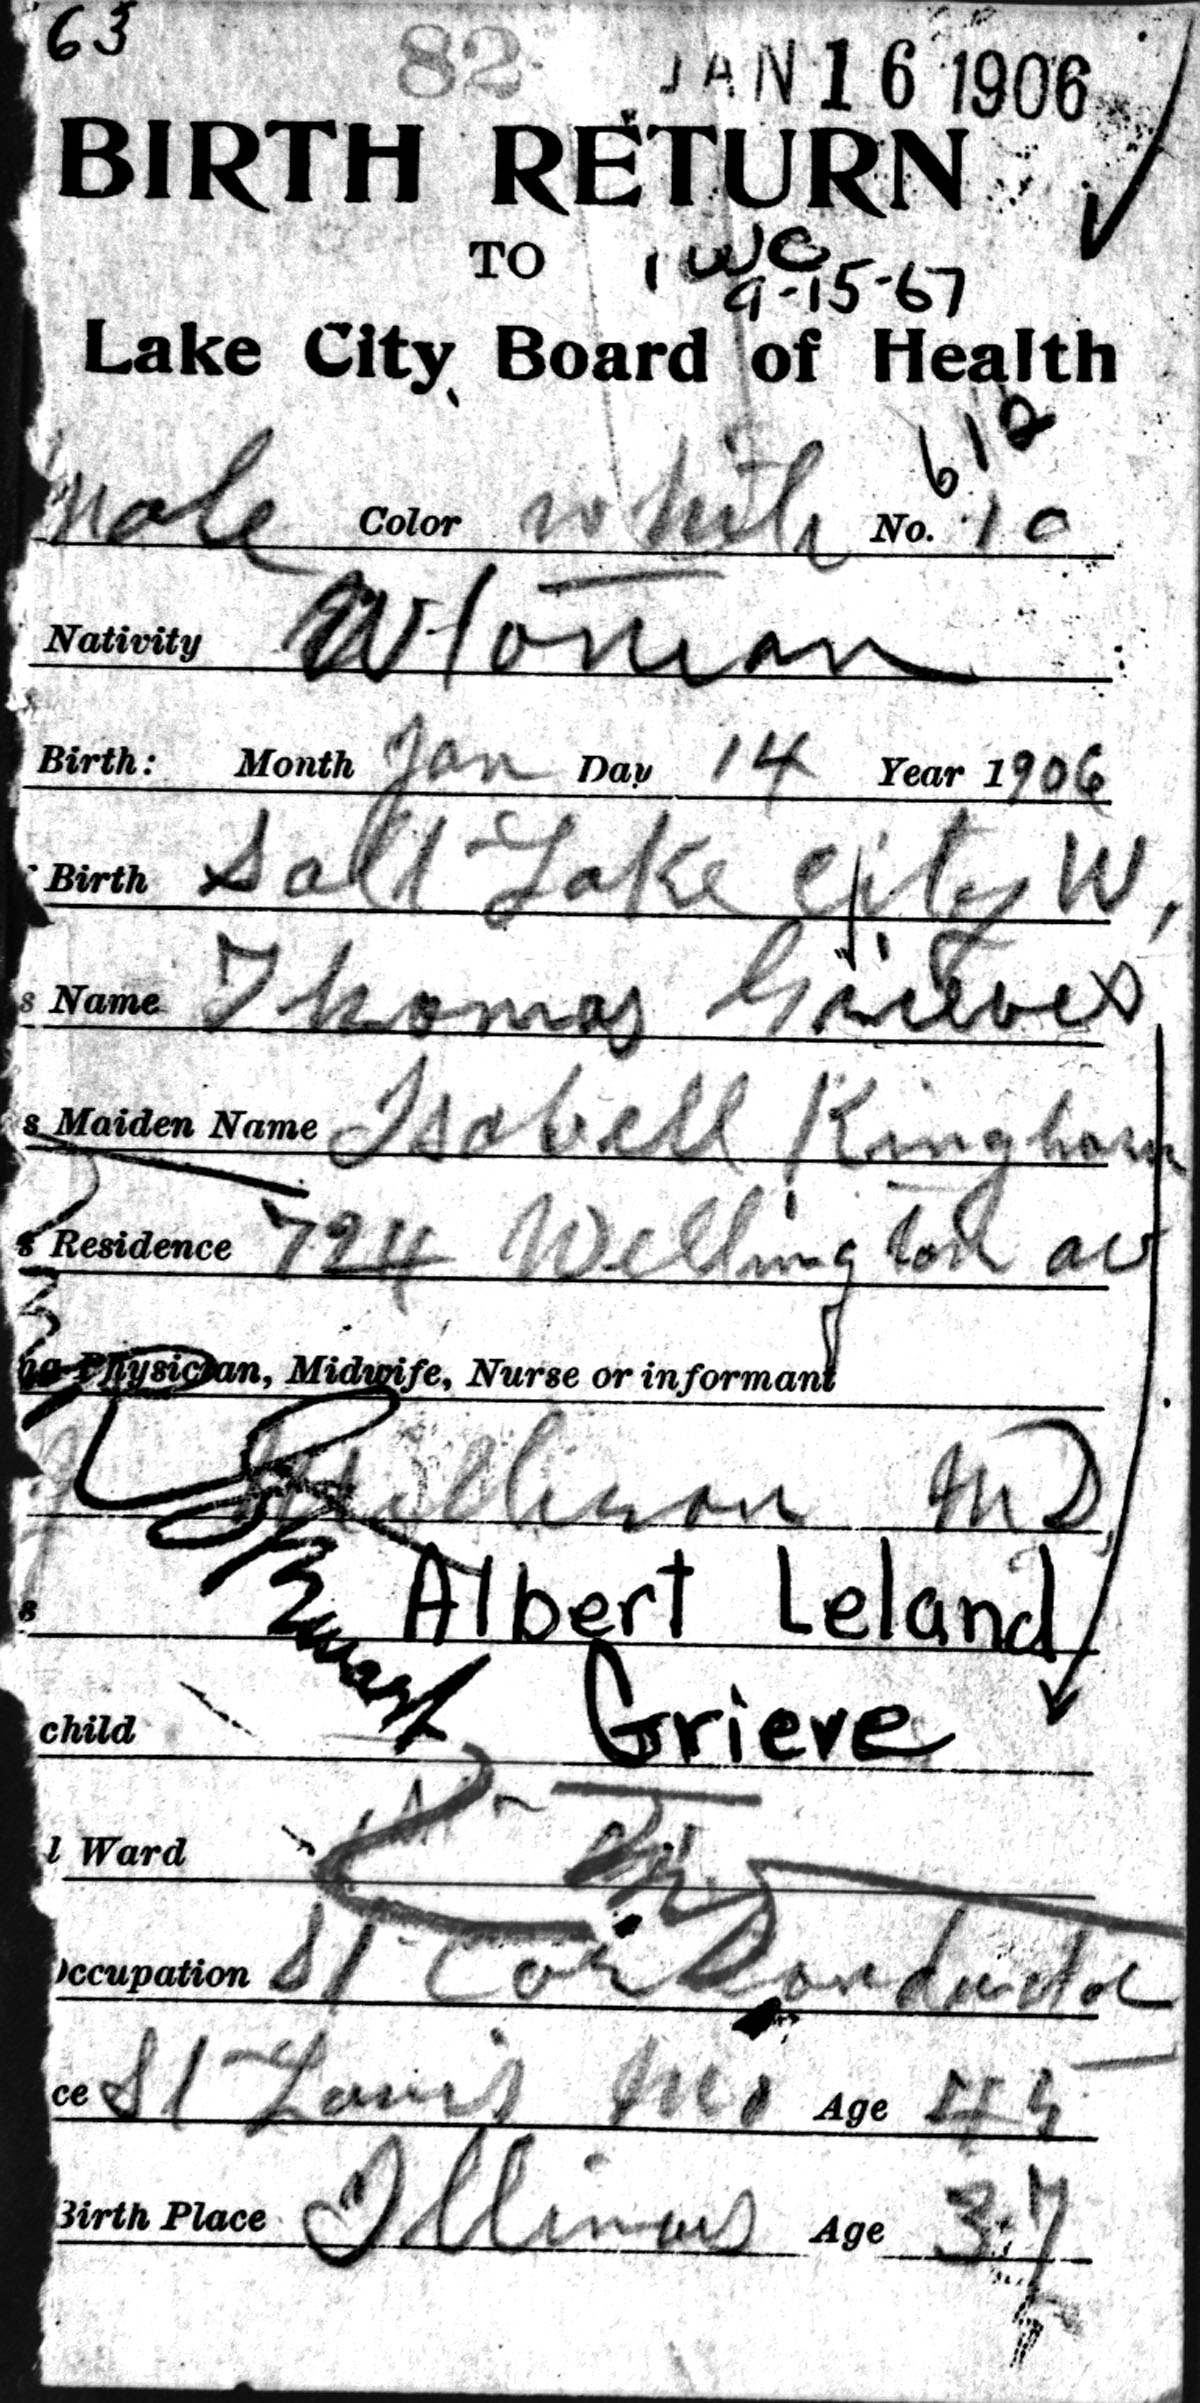 63 82 JAN 16 1906
BIRTH RETURN
TO 1 WC
9-15-67
Lake City Board of Health
612
male Color white No. 10
Nativity
Birth: Month Jan Day 14 Year 1906
Birth Salt Lake City
s Name Thomas Grieves
s Maiden Name Isabell Kinghorn
s Residence 724 Wellington av
Physician, Midwife, Nurse or informant
M D
s Albert Leland
child Grieve
l Ward
Occupation St Car Conductor
ce St Louis Mo Age 45
Birth Place Illinois Age 37